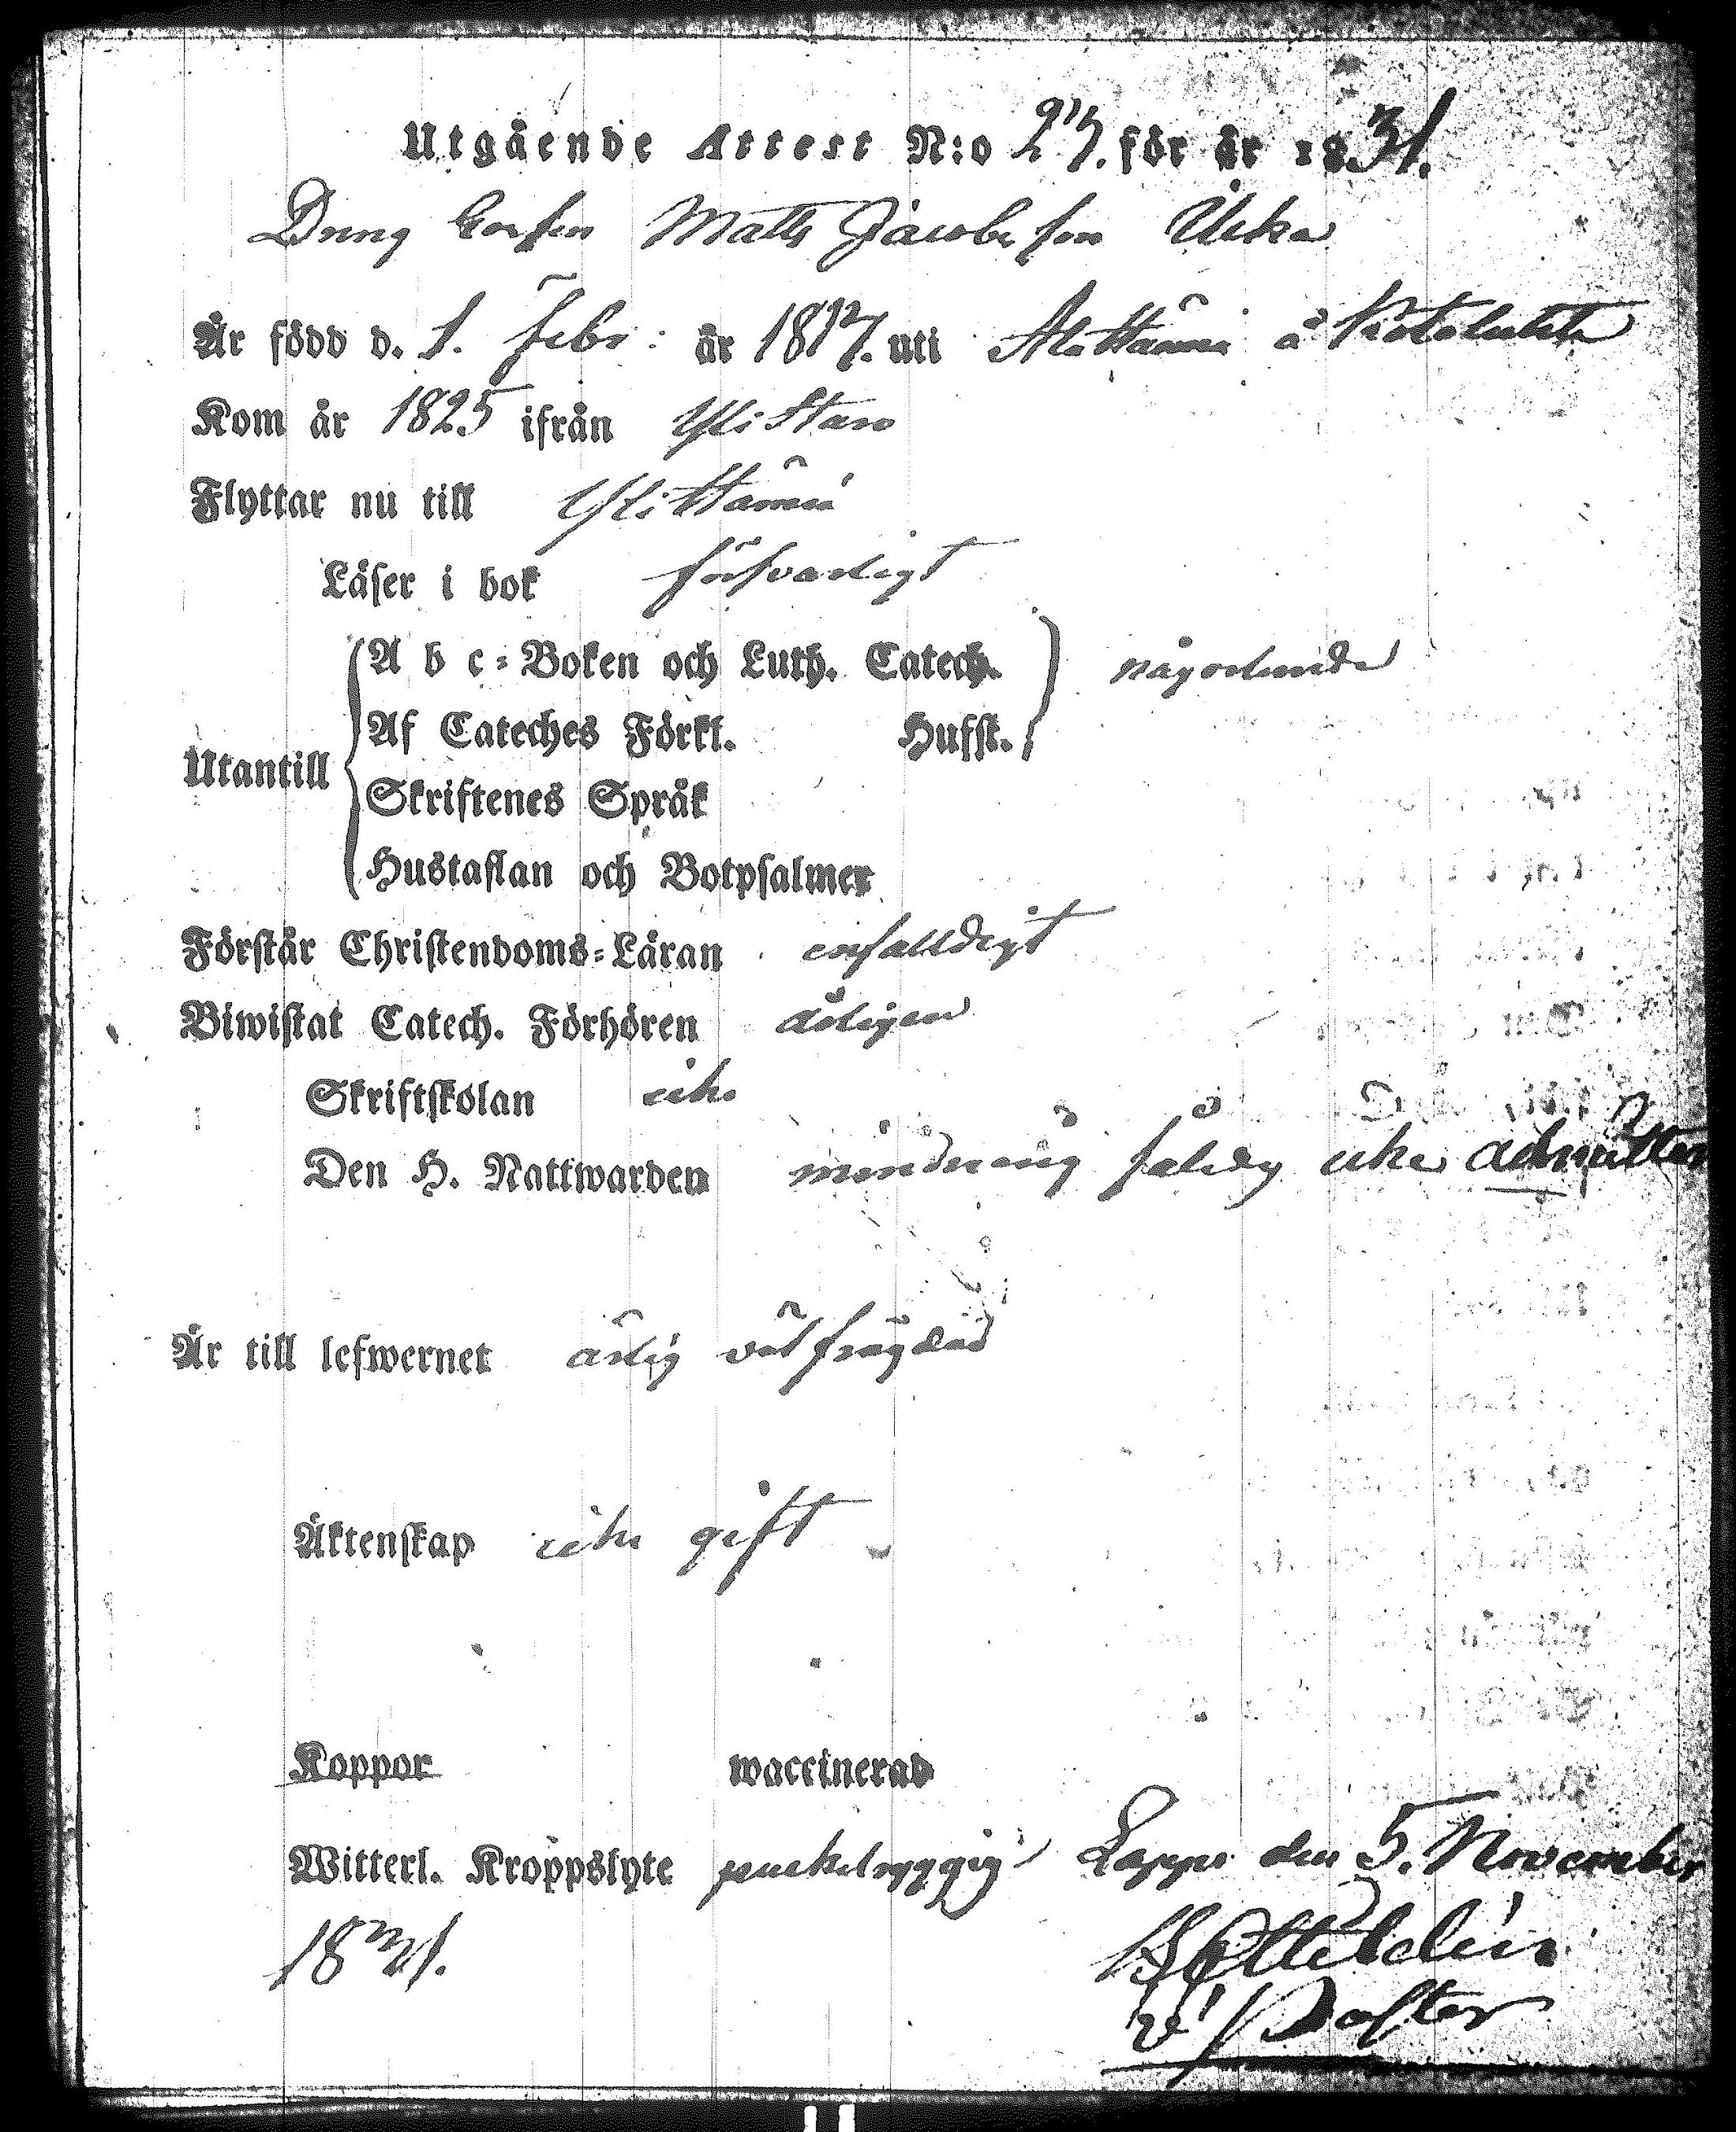 Utgående Attest N:o 27. för år 1831.
Dräng Matts Jacobsson
Är född d. 1. Febr: år 1817. uti å
Kom år 1825 ifrån Ylistaro
Flyttar nu till
Läser i bok försvarligt
A b c-Boken och Luth. Catech. någorlunda
Af Cateches Förkl. Hufst.
Utantill
Skriftenes Språk
Hustaflan och Botpsalmer
Förstår Christendoms-Läran enfalldigt
Biwistat Catech. Förhören årligen
Skriftskolan icke
Den H. Nattwarden minderårig således icke admitter
Är till lefwernet ärlig välfrägdad
Äktenskap icke gift
Koppor waccinerad
Witterl. Kroppslyte puckelryggig Lappo den 5. November
1831.
v. Pastor